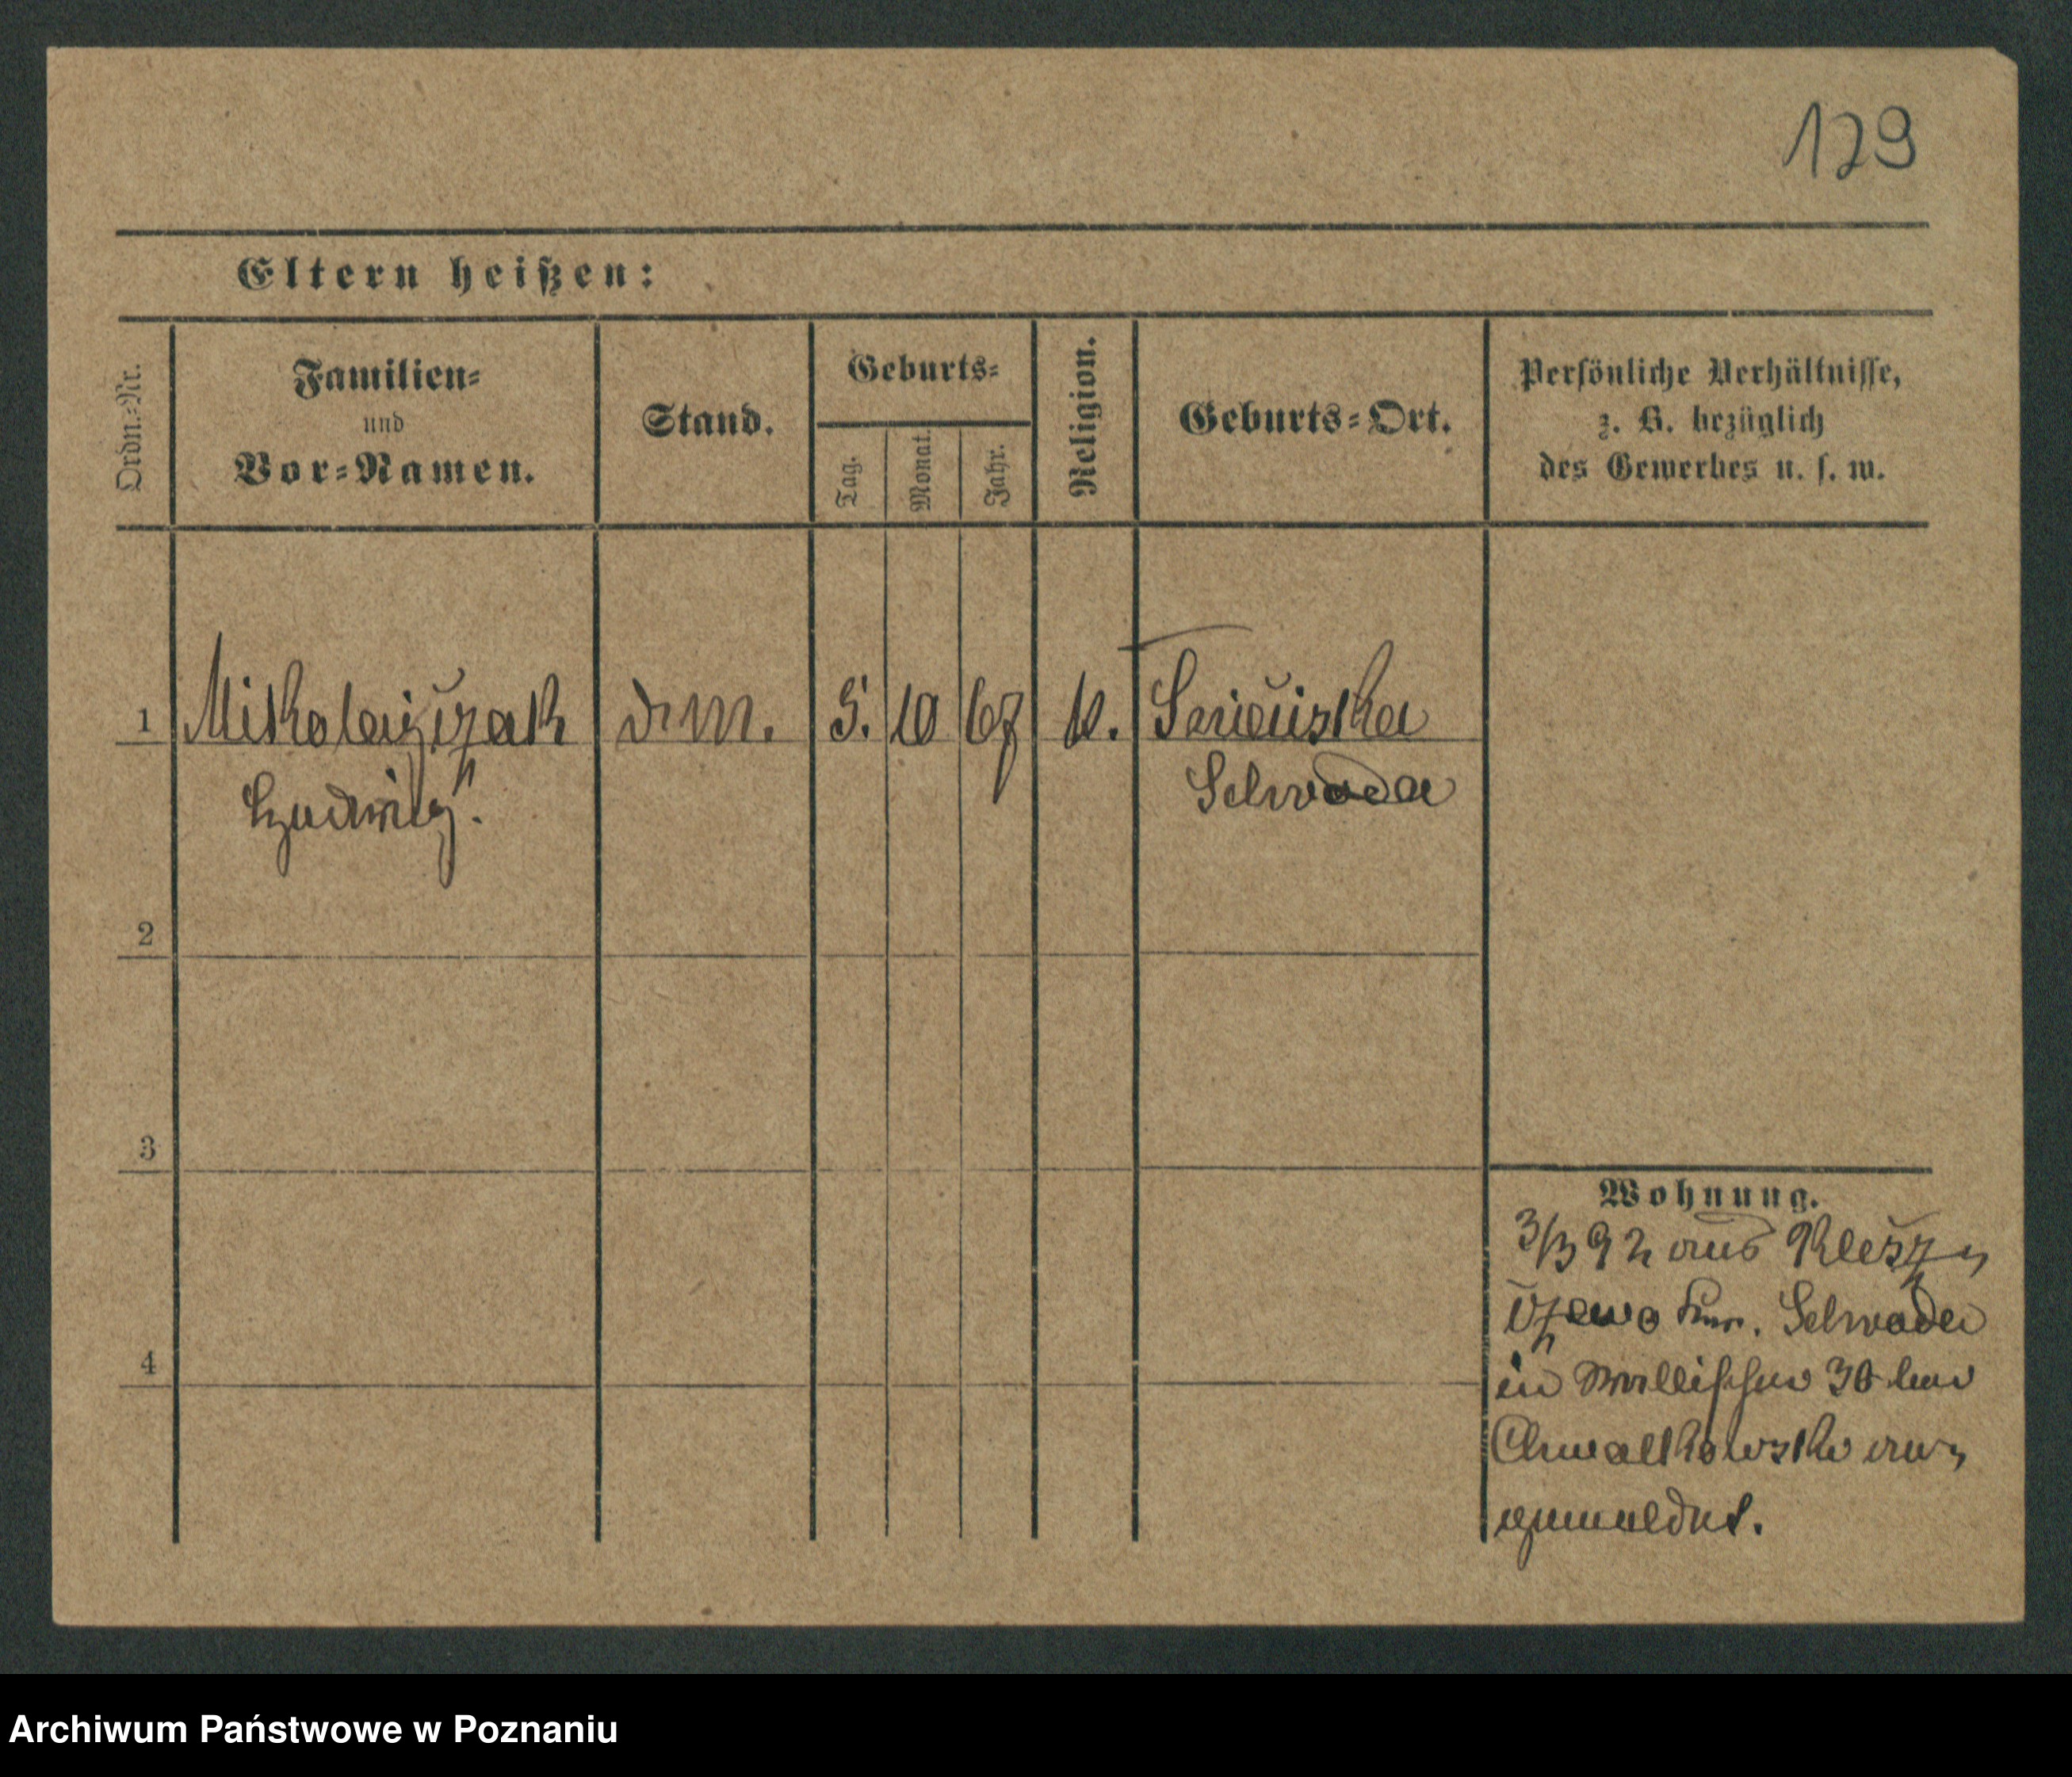 129
Eltern heißen:
Ordn.-Nr.
Familien-
und
Vor-Namen.
Stand.
Geburts-
Tag.
Monat.
Jahr.
Religion.
Geburts-Ort.
Persönliche Verhältnisse,
z. B. bezüglich
des Gewerbes u. s. w.
1
Mikolajczak
5.
10
67
k.
Ludwig.
Schroda
2
3
4
Wohnung.
3/3 92 aus
Schroda
in Wallischei 30 bei
Chwalkowski an-
gemeldet.
Archiwum Państwowe w Poznaniu